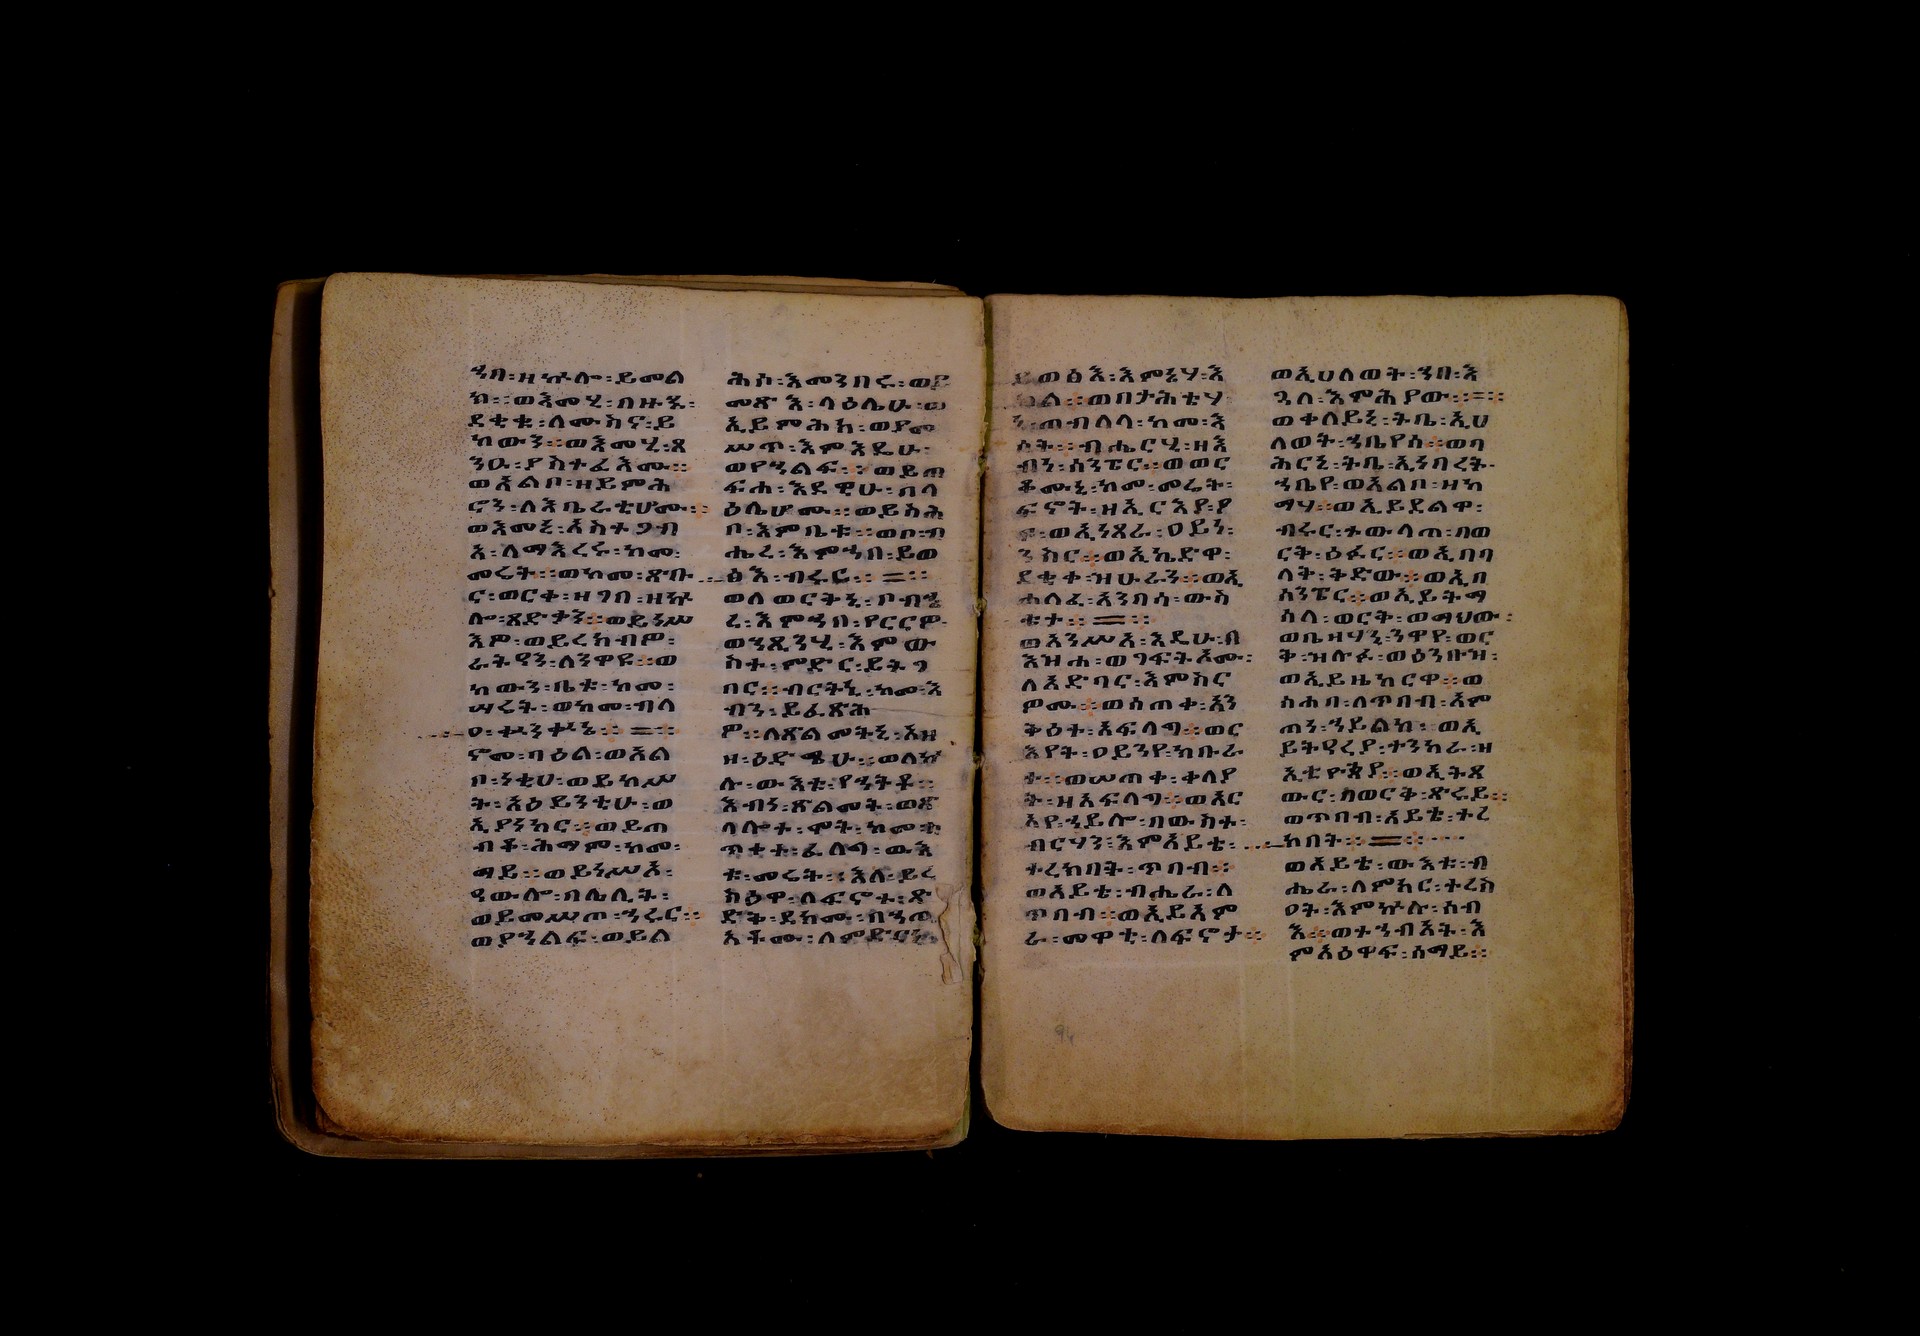 ኀበ፡ዘኵሎ፡ይመል
ክ፡፡ወእመሂ፡በዙኁ፡
ደቂቁ፡ለሙስና፡ይ
ከውን፡፡ወእመሂ፡ጸ
ንዑ፡ያስተፈእሙ፡፡
ወአልቦ፡ዘይምሕ
ሮን፡ለእቤራቲሆሙ፡፡
ወእመኒ፡አስተጋብ
አ፡ለማእረሩ፡ከመ፡
መሬት፡፡ወከመ፡ጽቡ
ር፡ወርቀ፡ዘገብ፡ዘኵ
ሎ፡ጸድታን፡፡ወይነሥ
እዎ፡ወይረክብዎ፡
ራትዓን፡ለንዋዩ፡፡ወ
ከውን፡ቤቱ፡ከመ፡
ሣሬት፡ወከመ፡ብላ
ዐ፡ቍንቍኔ፡፡=፡፡
ኖመ፡ባዕል፡ወአል
ቦ፡ንቲሀ፡ወይከሥ
ት፡አዕይንቲሁ፡ወ
ኢያነክር፡፡ወይጠ
ብቆ፡ሕማም፡ከመ፡
ማይ፡፡ወይነሥኦ፡
ዓውሎ፡በሌሊት፡
ወይመሥጦ፡ኀሩር፡፡
ወያኀልፍ፡ወይል
ሕሶ፡እመንበሩ፡ወይ
መጽእ፡ላዕሌሁ፡ወ
ኢይምሕክ፡ወያመ
ሥጥ፡እምእዴሁ፡
ወየኀልፍ፡፡ወይጠ
ፍሐ፡እደዊሁ፡በላ
ዕሌሆሙ፡፡ወይስሕ
ቦ፡እምቤቱ፡፡ወቦ፡ብ
ሔረ፡እምኀበ፡ይወ
ፅእ፡ብሩር፡፡=፡፡
ወለወርቅኒ፡ቦብሔ
ረ፡እምኀበ፡የርርዎ፡
ወኀጺንሂ፡እምው
ስተ፡ምድር፡ይትገ
በር፡፡ብርትኒ፡ከመ፡እ
ብን፡ይፈጽሕ
ዎ፡፡ለጽልመትኒ፡እዘ
ዘ፡ዕድሜሁ፡፡ወለኵ
ሉ፡ውእቱ፡የኀትቶ፡፡
እብነ፡ጽልመት፡ወጽ
ላሎተ፡ሞት፡ከመ፡ቱ
ጥቀተ፡ፈለግ፡ውእ
ቱ፡መሬት፡፡እለ፡ይረ
ክዕዋ፡ለፍኖተ፡ጽ
ድቅ፡ደክሙ፡በኀጢ
አቶሙ፡ለምድርኒ
ይወፅእ፡እምኔሃ፡እ
ክል፡፡ወበታሕቲሃ
ኒ፡ጠብለላ፡ከመ፡እ
ሳት፡፡ብሔርሂ፡ዘእ
ብነ፡ሰንፔር፡፡ወወር
ቆሙኒ፡ከመ፡መሬት፡
ፍኖት፡ዘኢርእየ፡ዖ
ፍ፡ወኢነጸራ፡ዐይነ፡
ንስር፡፡ወኢኬድዋ፡
ደቂቀ፡ዝሁራን፡፡ወኢ
ሐለፈ፡አንበሳ፡ውስ
ቴታ፡፡=፡፡
ወአንሥአ፡እዴሁ፡በ
እዝሐ፡ወገፍትኦሙ፡
ለአድባር፡እምስር
ዎሙ፡፡ወሰጠቀ፡እን
ቅዕተ፡አፍላግ፡፡ወር
እየት፡ዐይንየ፡ክቡራ
ተ፡፡ወሠጠቀ፡ቀላያ
ት፡ዘአፍላግ፡፡ወአር
አየ፡ኀይሎ፡በውስተ፡
ብርሃን፡እምአይቴ፡
ተረክበት፡ጥበብ፡፡
ወአይቴ፡ብሔራ፡ለ
ጥበብ፡፡ወኢይእም
ራ፡መዋቲ፡ለፍኖታ፡፡
ወኢሀለወት፡ኀበ፡እ
ጓለ፡እምሕያው፡፡=፡፡
ወቀላይኒ፡ትቤ፡ኢሀ
ለወት፡ኀቤየሰ፡፡ወባ
ሕርኒ፡ትቤ፡ኢነበረት፡
ኀቤየ፡ወአልቦ፡ዘከ
ማሃ፡፡ወኢይደልዋ፡
ብሩር፡ተውላጠ፡በወ
ርቅ፡ዕፉር፡፡ወኢበባ
ላት፡ትድው፡፡ወኢበ
ሰንፔር፡፡ወኢይትማ
ሰላ፡ወርቅ፡ወማህው፡
ወቤዛሃኒ፡ንዋየ፡ወር
ቅ፡ዝሉፉ፡ወዕንቡዝ፡
ወኢይዜከርዋ፡፡ወ
ስሐባ፡ለጥበብ፡እም
ጠነ፡ኀይልከ፡ወኢ
ይትዓረያ፡ተንከራ፡ዘ
ኢቲዮጵያ፡፡ወኢትጸ
ውር፡በወርቅ፡ጽሩይ፡፡
ወጥበብ፡አይቴ፡ተረ
ክበት፡፡=፡፡
ወአይቴ፡ውእቱ፡ብ
ሔራ፡ለምክር፡ተረስ
ዐት፡እምኵሉ፡ሰብ
እ፡፡ወተኀብአት፡እ
ምአዕዋፍ፡ሰማይ፡፡
94